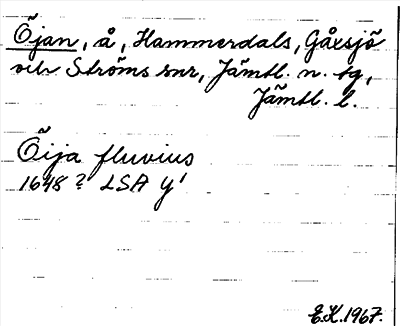 Öjan, å, Hammerdals, Gåxsjö
och Ströms snr, Jämtl. n. tg,
Jämtl. l.
Öija fluvius
1648? LSA Y¹
E.K. 1967.